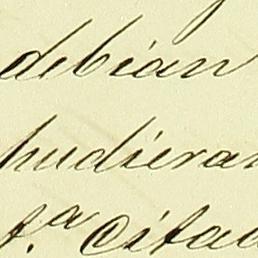 debian
pudieran
t.ª citad